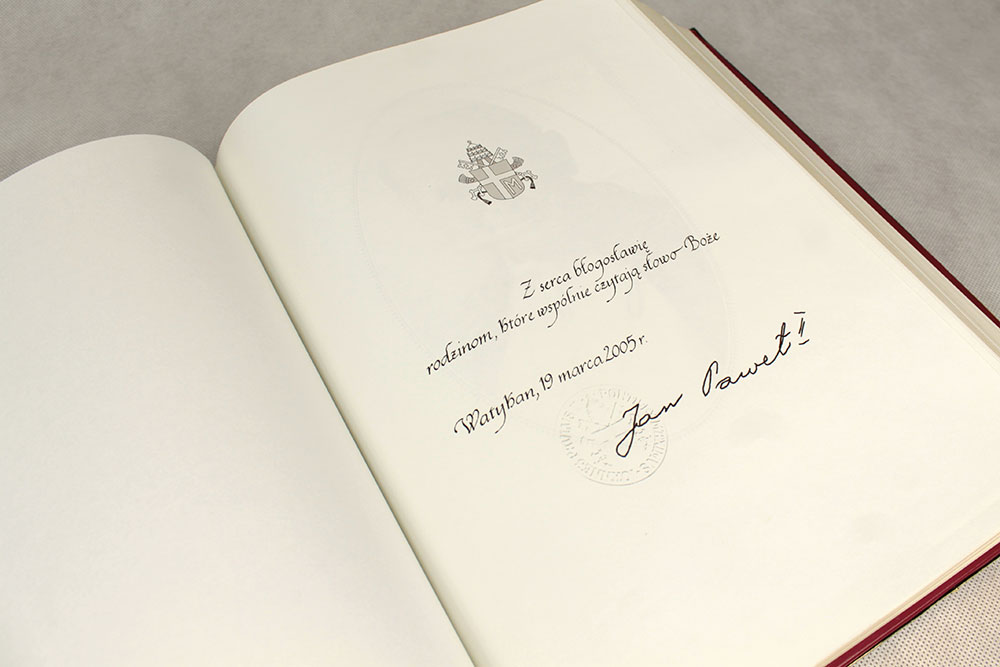 Z serca błogosławię
rodzinom, które wspólnie czytają słowo Boże
Watykan, 19 marca 2005 r.
Jan Paweł II
M